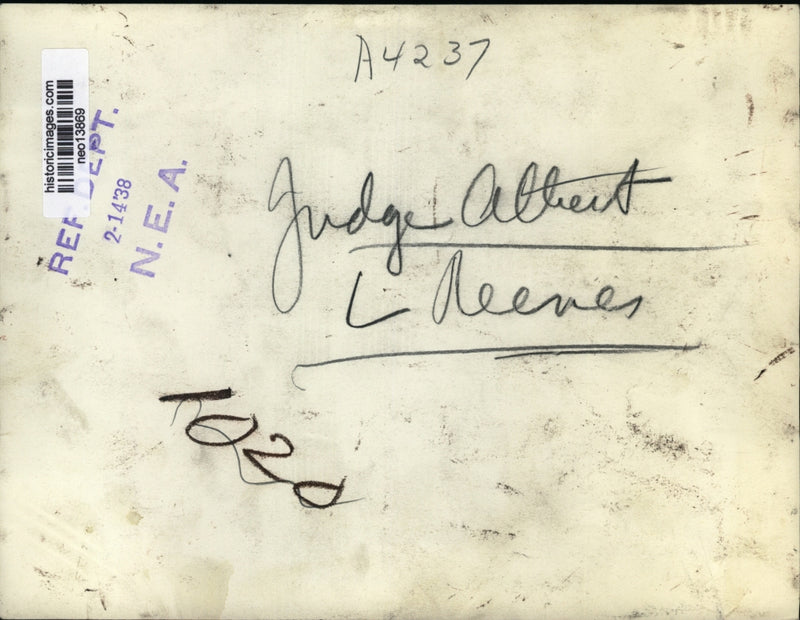 A4237
historicimages.com
neo13869
REF. DEPT.
2-14'38
N. E. A.
Judge Albert
L Reeves
1020